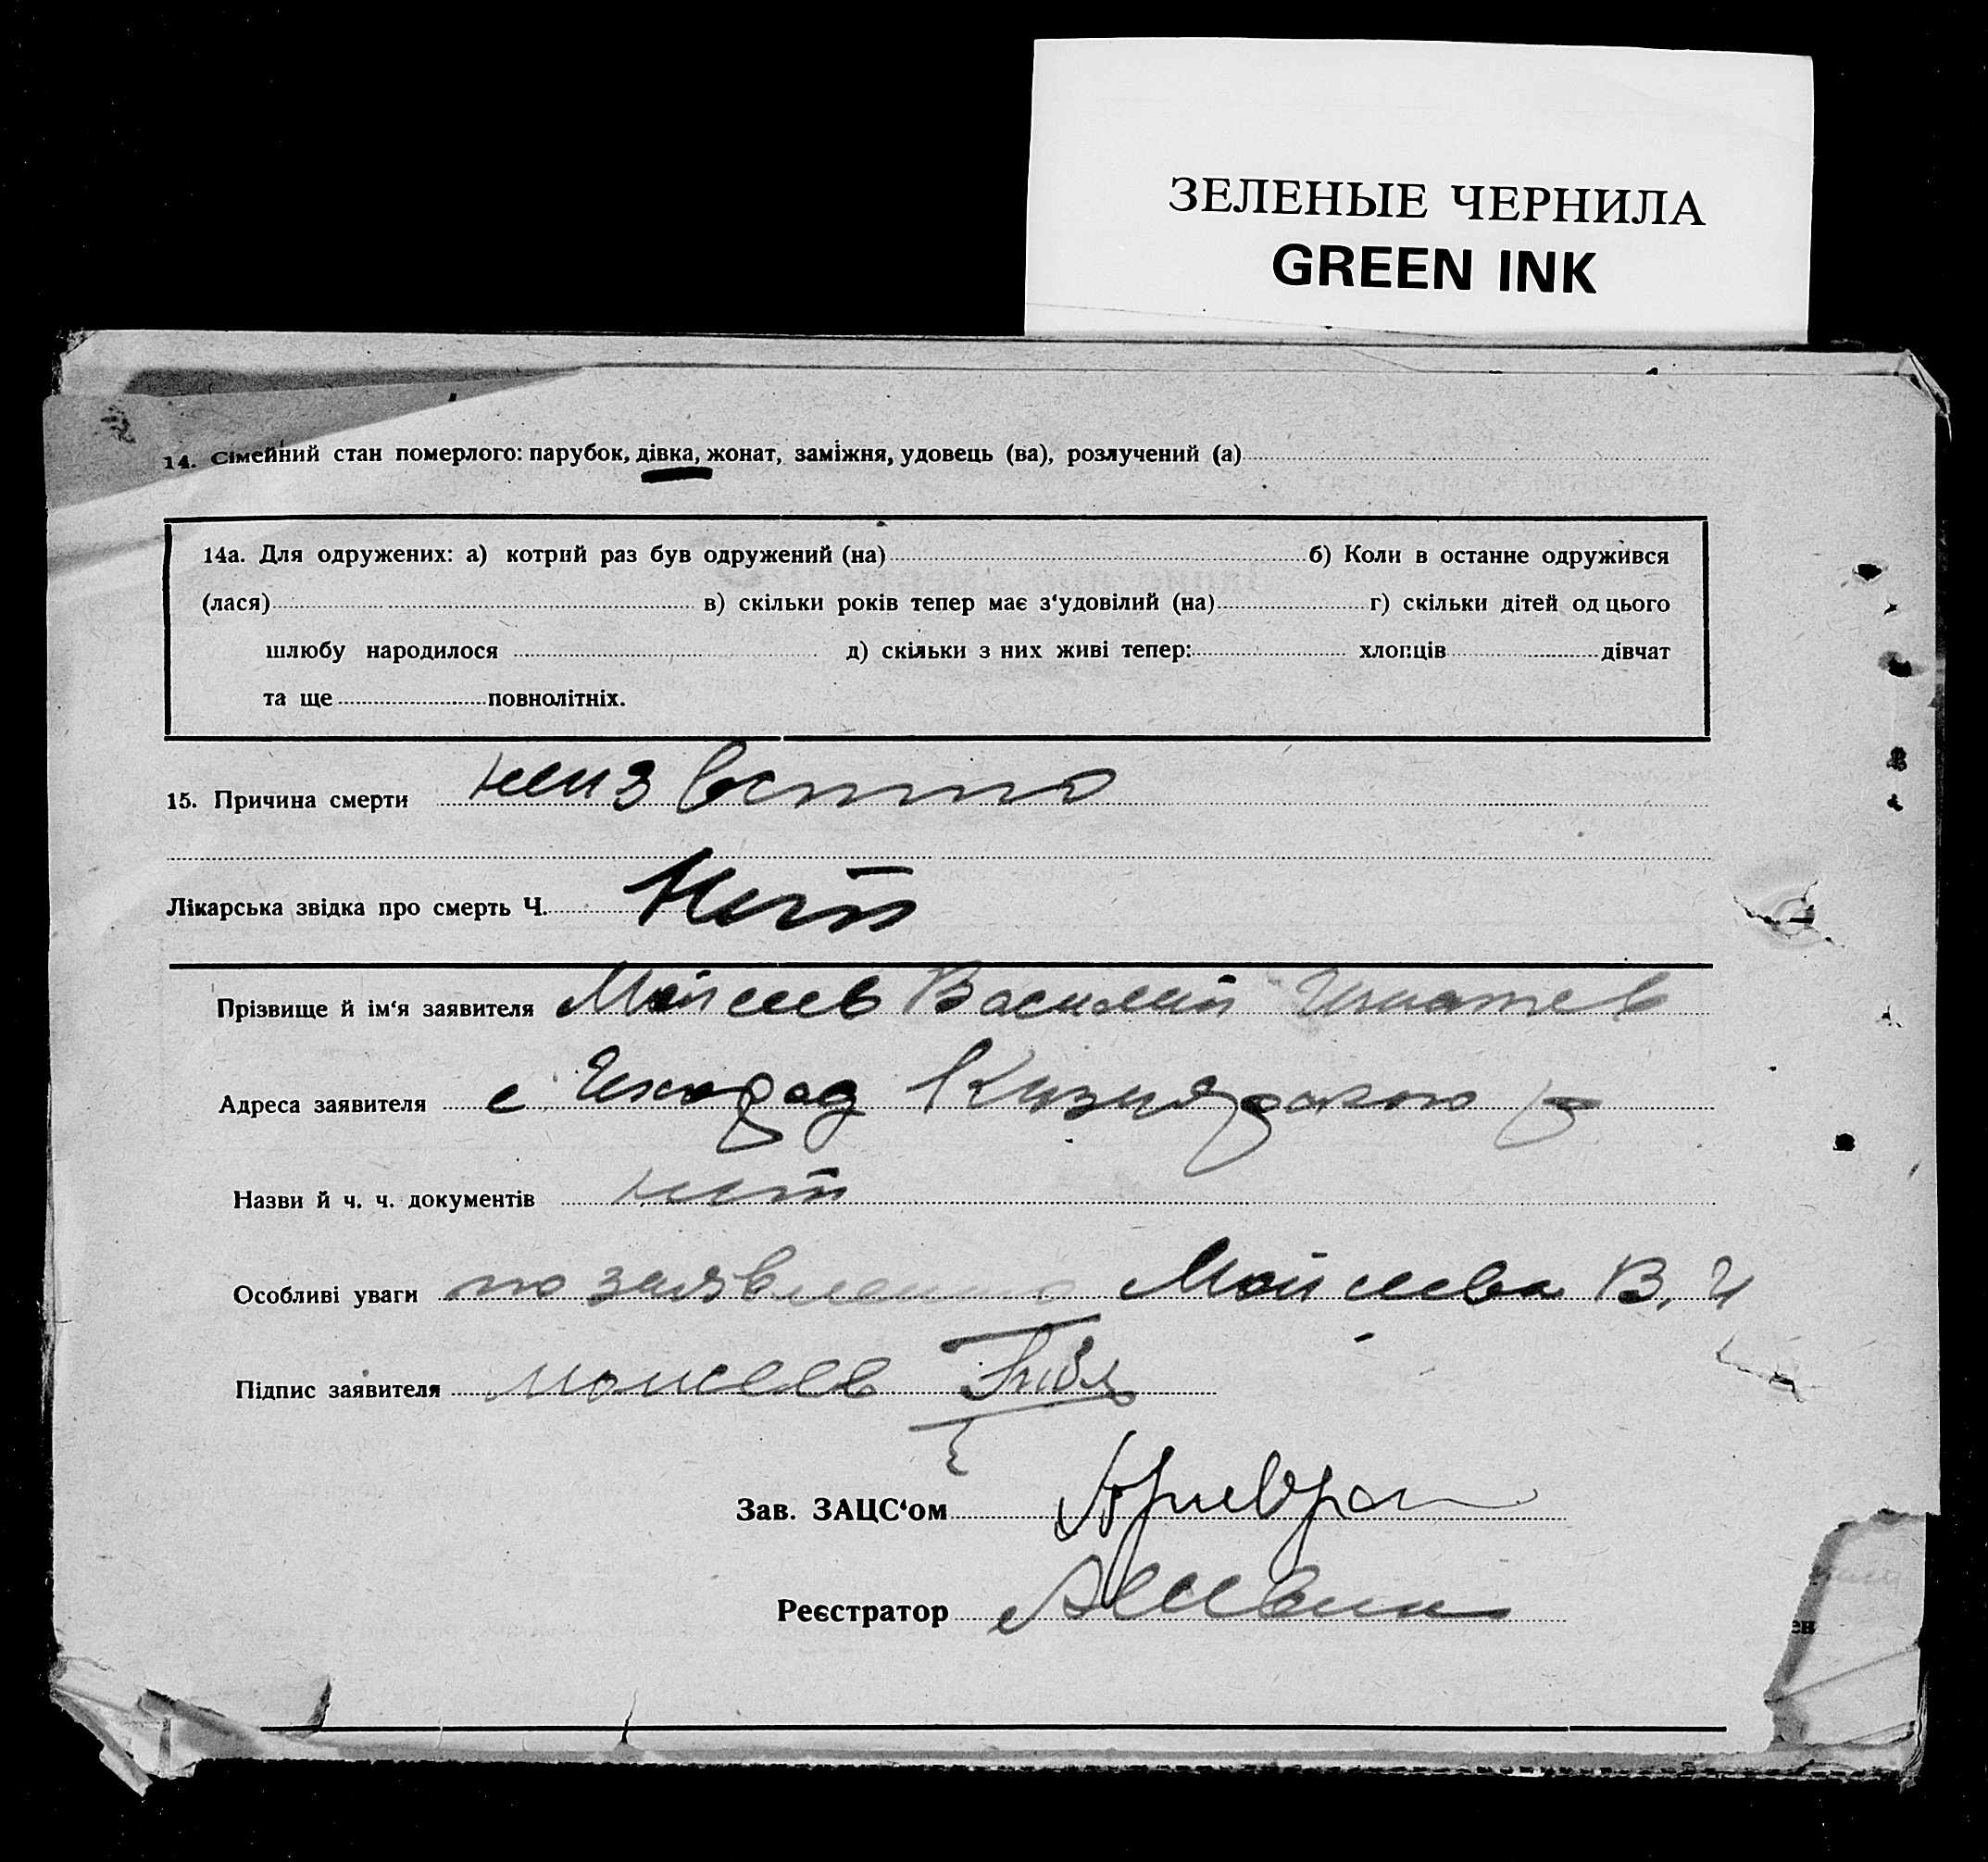 ЗЕЛЕНЫЕ ЧЕРНИЛА
GREEN INK
14. Сімейний стан померлого: парубок, дівка, жонат, заміжня, удовець (ва), розлучений (а)
14а. Для одружених: а) котрий раз був одружений (на) б) Коли в останне одружився
(лася) в) скільки років тепер має з‘удовілий (на) г) скільки дітей од цього
шлюбу народилося д) скільки з них живі тепер: хлопців дівчат
та ще повнолітніх.
15. Причина смерти неизвестно
Лікарська звідка про смерть Ч. Нет
Прізвище й ім‘я заявителя Мойсеев Василий Игнатев
Адреса заявителя с
Назви й ч. ч. документів нет
Особливі уваги по заявлению Мойсеева В. И
Підпис заявителя моисеев
Зав. ЗАЦС‘ом
Реєстратор
ен